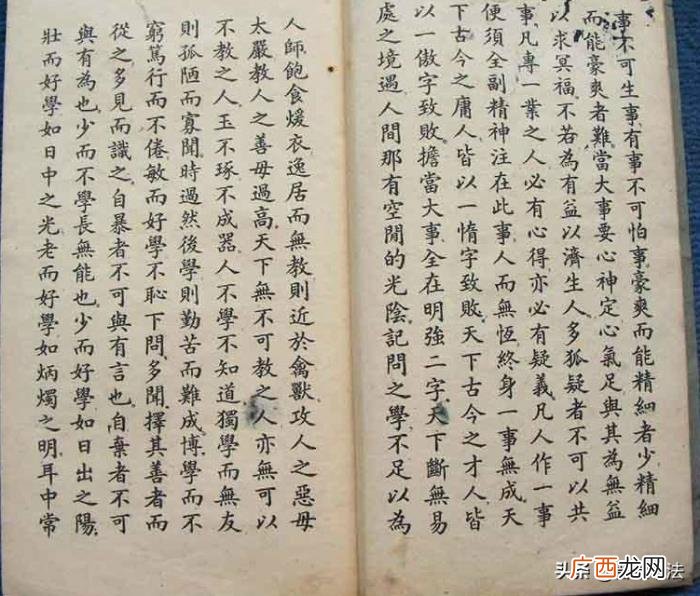 事不可生事有事不可怕事豪爽而能精細者少精細
而能豪爽者難當大事要心神定心氣足與其為無益
以求冥福不若為有益以濟生人多狐疑者不可以共
事凡專一業之人必有心得亦必有疑義凡人作一事
便須全副精神注在此事人而無恆終身一事無成天
下古今之庸人皆以一惰字致敗天下古今之才人皆
以一傲字致敗擔當大事全在明強二字天下斷無易
處之境遇人間那有空閒的光陰記問之學不足以為
人師飽食煖衣逸居而無教則近於禽獸攻人之惡毋
太嚴教人之善毋過高天下無不可教之人亦無可以
不教之人玉不琢不成器人不學不知道獨學而無友
則孤陋而寡聞時過然後學則勤苦而難成博學而不
窮篤行而不倦敏而好學不恥下問多聞擇其善者而
從之多見而識之自暴者不可與有言也自棄者不可
與有為也少而不學長無能也少而好學如日出之陽
壯而好學如日中之光老而好學如炳燭之明耳中常
头条 法
广西龙网